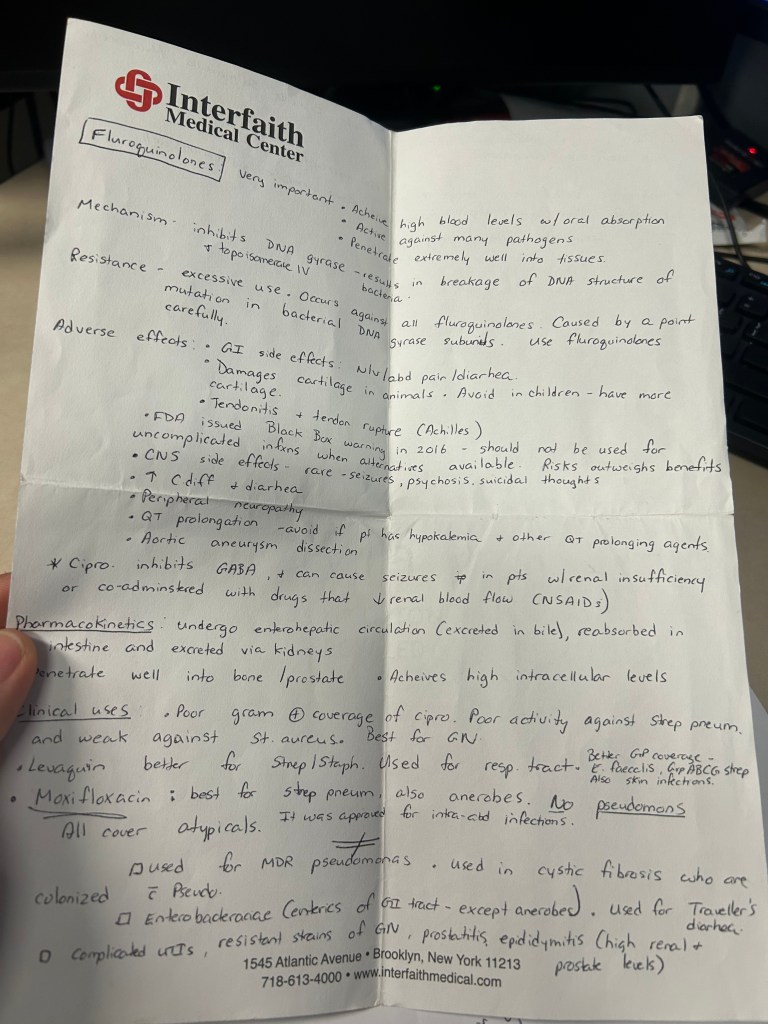 Interfaith
Medical Center
Fluroquinolones
Very important • Acheive high blood levels w/oral absorption
• Active against many pathogens
• Penetrate extremely well into tissues.
Mechanism - inhibits DNA gyrase - results in breakage of DNA structure of
& topoisomerase IV bacteria.
Resistance - excessive use. Occurs against all fluroquinolones. Caused by a point
mutation in bacterial DNA gyrase subunits. use fluroquinolones
carefully.
Adverse effects: • GI side effects: N/v/abd pain/diarrhea.
• Damages cartilage in animals • Avoid in children - have more
cartilage.
• Tendonitis & tendon rupture (Achilles)
• FDA issued Black Box warning in 2016 - should not be used for
uncomplicated infxns when alternatives available. Risks outweighs benefits
• CNS side effects - rare - seizures, psychosis, suicidal thoughts
• ↑ C.diff & diarrhea
• Peripheral neuropathy
• QT prolongation - avoid if pt has hypokalemia & other QT prolonging agents.
• Aortic aneurysm dissection
* Cipro. inhibits GABA, & can cause seizures in pts w/renal insufficiency
or co-adminstered with drugs that ↓ renal blood flow (NSAIDs)
Pharmacokinetics: undergo enterohepatic circulation (excreted in bile), reabsorbed in
intestine and excreted via kidneys
Penetrate well into bone/prostate • Acheives high intracellular levels
Clinical uses: • Poor gram ⊕ coverage of cipro. Poor activity against Strep pneum.
and weak against St. aureus. Best for GN.
• Levaquin better for Strep/Staph. Used for resp. tract. Better G+P coverage -
E. faecalis, Grp ABCG strep
Also skin infections.
• Moxifloxacin: best for strep pneum, also anerobes. No pseudomons
All cover atypicals. It was approved for intra-abd infections.
□ used for MDR pseudomonas. used in cystic fibrosis who are
colonized c̄ Pseudo.
□ Enterobacteraciae (enterics of GI tract - except anerobes). used for Traveller's
diarrhea.
□ Complicated UTIs, resistant strains of GN, prostatitis, epididymitis (high renal +
prostate levels)
1545 Atlantic Avenue • Brooklyn, New York 11213
718-613-4000 • www.interfaithmedical.com